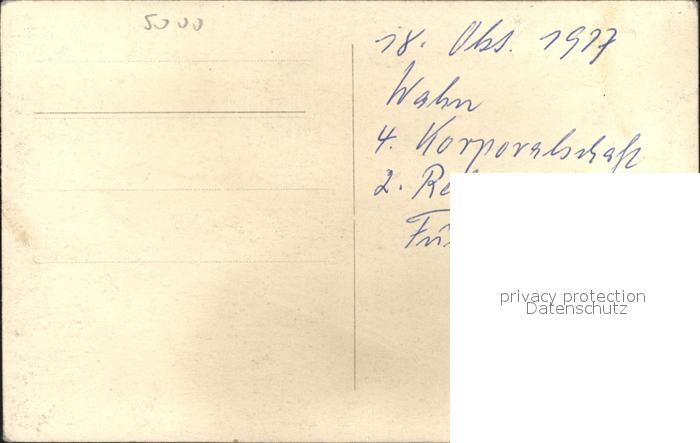 5000
18. Okt. 1917
Wahn
4. Korporalschaft
2.
privacy protection
Datenschutz